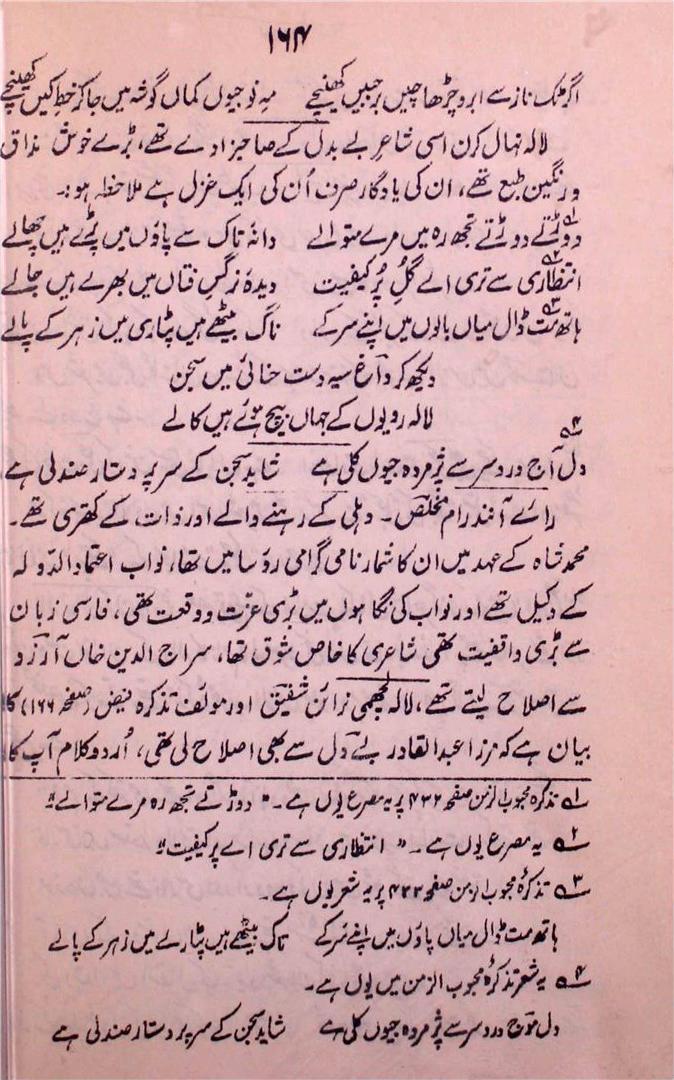 ۱۶۴
اگر ٹک ناز سے ابرو چڑھا چیں بر جبیں کھینچے مہ نو جیوں کماں گوشہ میں جا کر خط کیں کھینچے
لالہ نہال کرن اسی شاعر بے بدل کے صاحبزادے تھے، بڑے خوش مذاق
ورنگین طبع تھے، ان کی یادگار صرف اُن کی ایک غزل ہے ملاحظہ ہو:۔
دوڑتے دوڑتے تجھ رہ میں مرے متوالے دانۂ تاک سے پاؤں میں پڑے ہیں چھالے
انتظاری سے تری اے گُلِ پُر کیفیت دیدۂ نرگسِ فتاں میں بھرے ہیں جالے
ہاتھ مت ڈال میاں بالوں میں اپنے سر کے ناگ بیٹھے ہیں پٹاری میں زہر کے پالے
دیکھ کر داغ سیہ دست حنائی میں سجن
لالہ رویوں کے جہاں بیچ ہوئے ہیں کالے
دل آج درد سر سے پژمردہ جیوں کلی ہے شاید سجن کے سر پر دستار صندلی ہے
رائے آنند رام مخلص۔ دہلی کے رہنے والے اور ذات کے کھتری تھے۔
محمد شاہ کے عہد میں ان کا شمار نامی گرامی رؤسا میں تھا، نواب اعتماد الدّولہ
کے وکیل تھے اور نواب کی نگاہوں میں بڑی عزّت و وقعت تھی، فارسی زبان
سے بڑی واقفیت تھی شاعری کا خاص شوق تھا، سراج الدین خاں آرزو
سے اصلاح لیتے تھے، لالہ لچھمی نرائن شفیق اور مولف تذکرہ (صفحہ ۱۶۶) کا
بیان ہے کہ مرزا عبدالقادر بے دل سے بھی اصلاح لی تھی، اُردو کلام آپ کا
۱ تذکرہ محبوب الزمن صفحہ ۴۳۲ پر یہ مصرع یوں ہے۔ "دوڑتے تجھ رہ مرے متوالے"
۲ یہ مصرع یوں ہے۔ "انتظاری سے تری اے پر کیفیت"
۳ تذکرۂ محبوب الزمن صفحہ ۴۳۳ پر یہ شعر یوں ہے۔
ہاتھ مت ڈال میاں پاؤں میں اپنے سر کے ناگ بیٹھے ہیں پٹارے میں زہر کے پالے
۴ یہ شعر تذکرۂ محبوب الزمن میں یوں ہے۔
دل موج درد سر سے پژمردہ جیوں کلی ہے شاید سجن کے سر پر دستار صندلی ہے